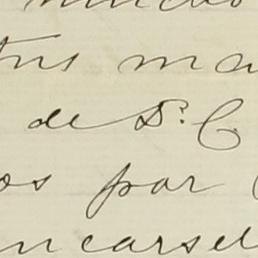 tus ma
de Dr. C
os por
ncarsel